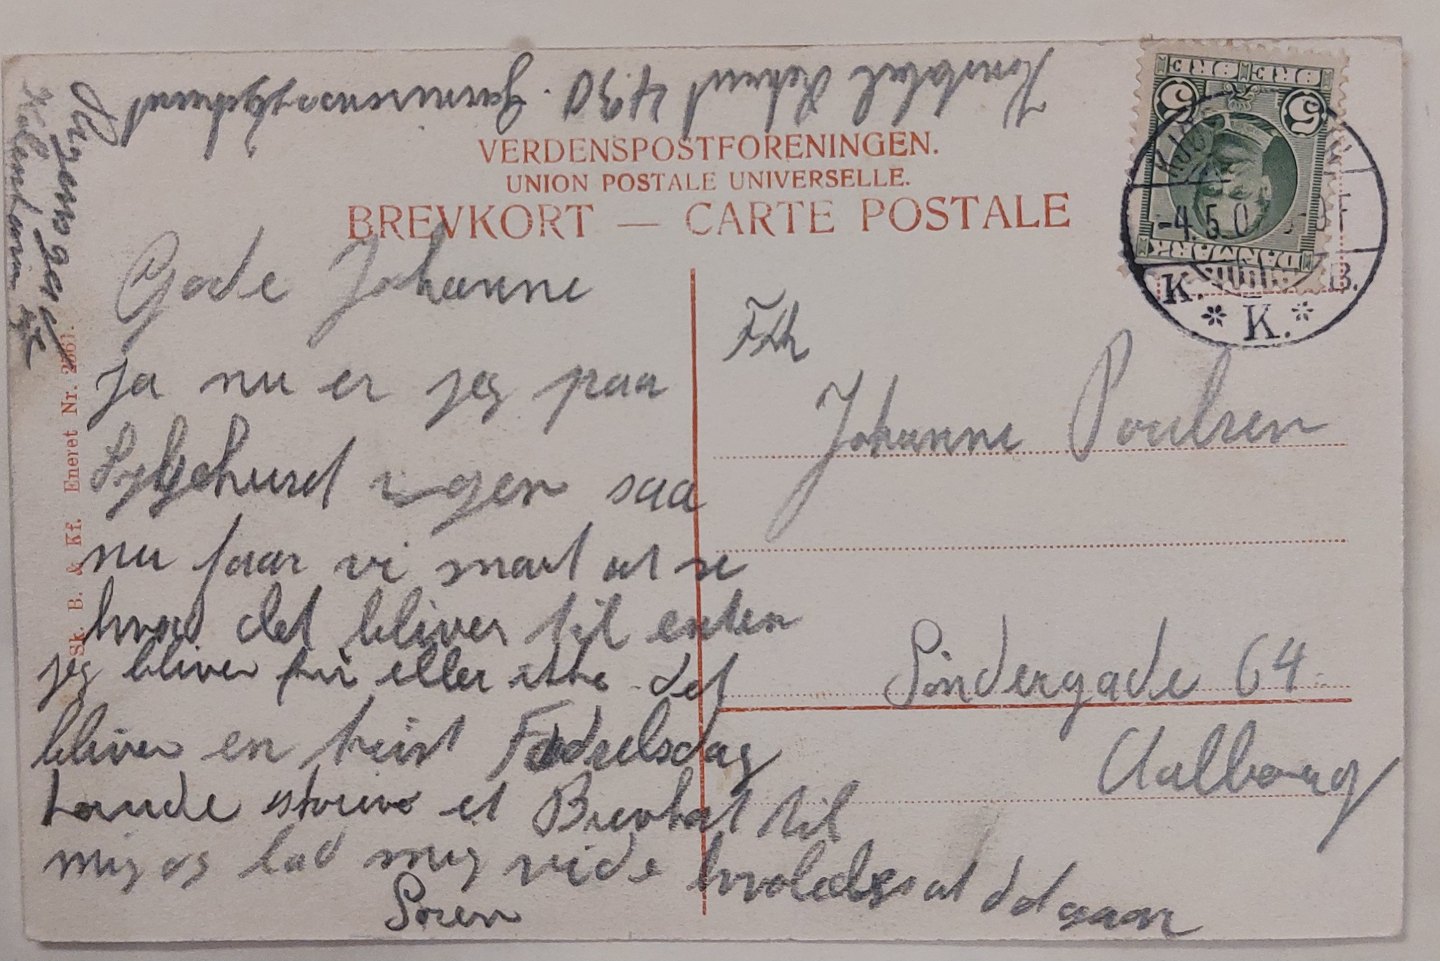 VERDENSPOSTFORENINGEN.
UNION POSTALE UNIVERSELLE.
BREVKORT — CARTE POSTALE
5 ØRE ØRE 5
DANMARK
-4.5.0
K. B.
* K. *
Gode Johanne
ja nu er jeg paa
Sygehusd igen saa
nu faar vi snart at se
hvad det bliver til enten
jeg bliver fri eller ikke det
bliver en trist Fødselsdag
skrive et Brevkort til
mig og lad mig vide hvoledes at det gaar
Søren
Frk
Johanne Poulsen
Söndergade 64
Aalborg
Konstabel 430 Garnisonssygehuset
Kjøbenhavn
Sk. B. & Kf. Eneret Nr.